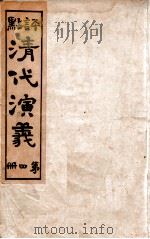 評點
清代演義
第四冊